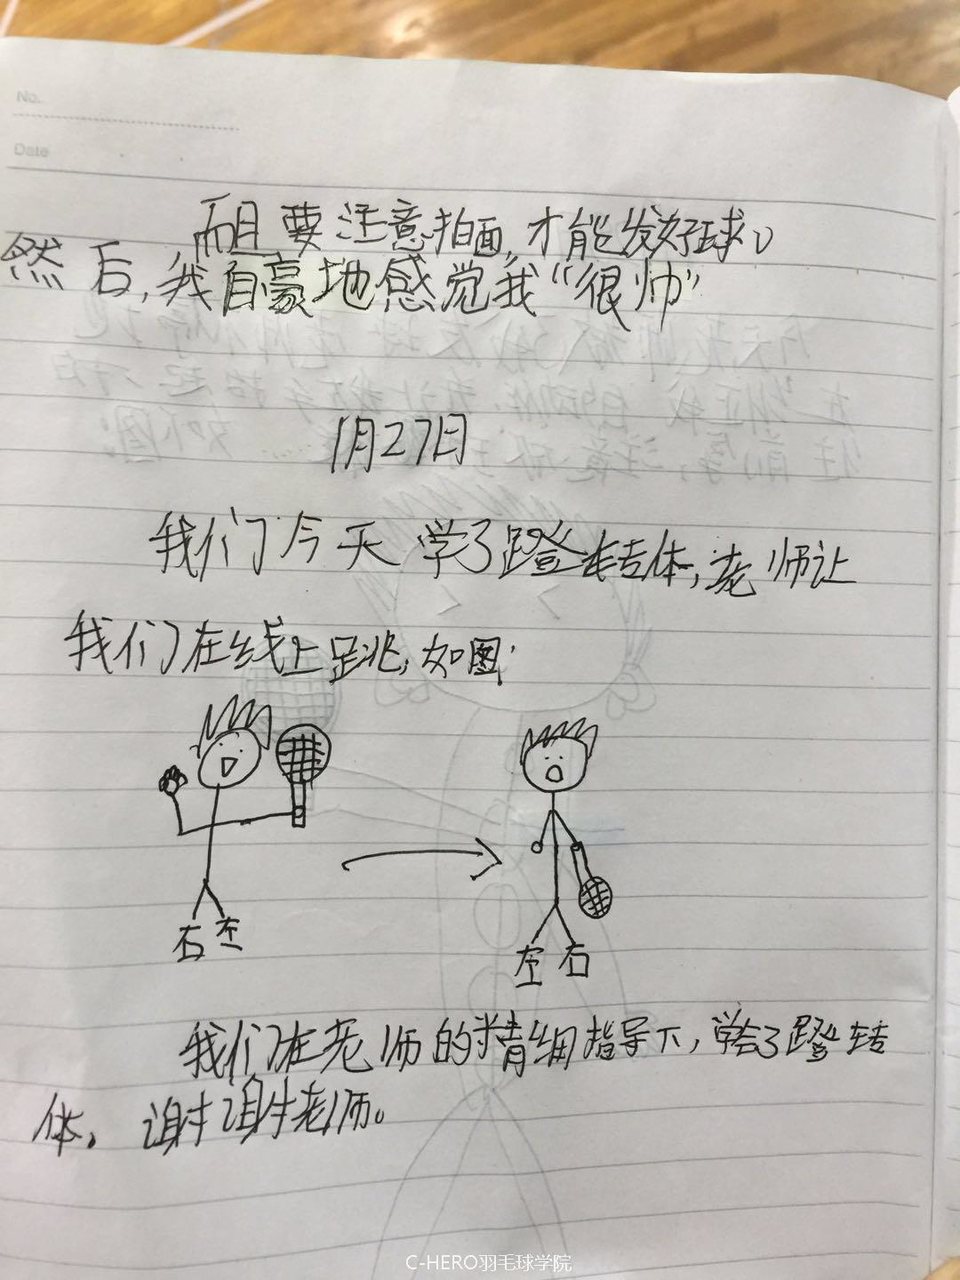 No.
Date
而且要注意拍面,才能发好球。
然后,我自豪地感觉我“很帅”
1月27日
我们今天学了蹬转体,老师让
我们在线上跳,如图:
右 左
左 右
我们在老师的精细指导下,学会了蹬转
体。谢谢老师。
C-HERO羽毛球学院